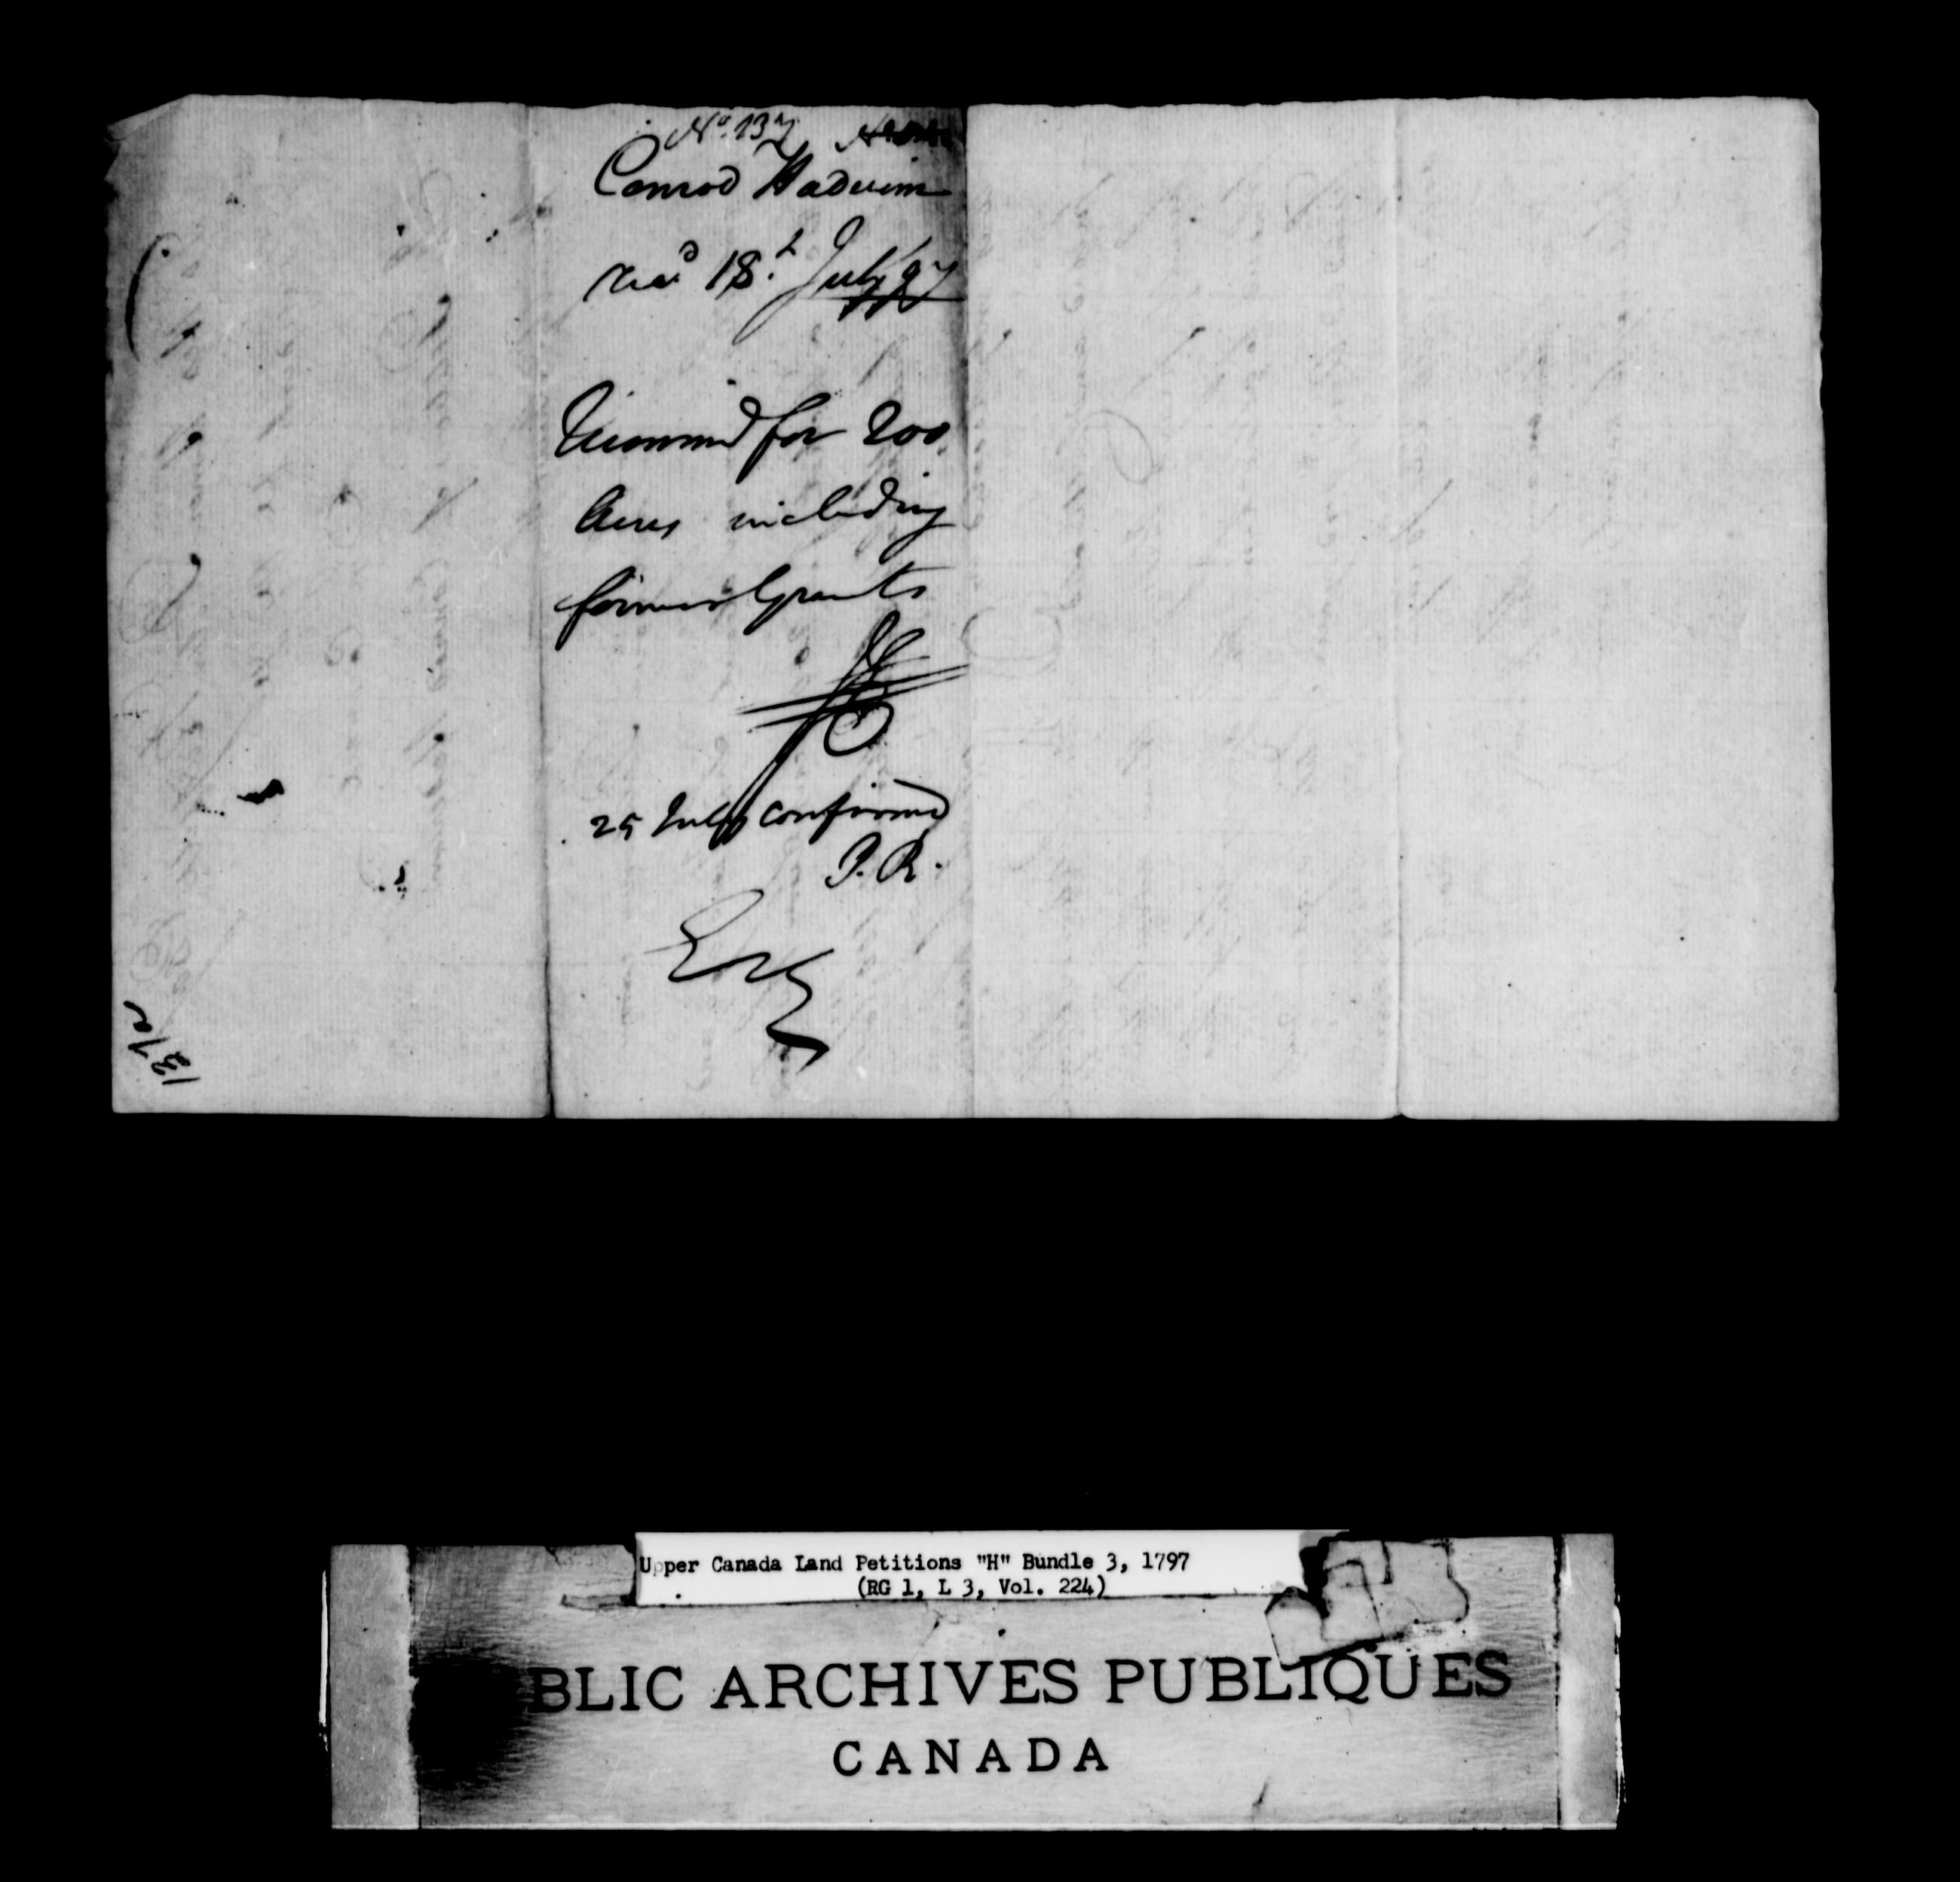 No. 137
Conrod Haduim
recd 18th July 97
Recommd for 200
Acres including
former Grants
25 July Confirmed
P. R.
137a
Upper Canada Land Petitions "H" Bundle 3, 1797
(RG 1, L 3, Vol. 224)
BLIC ARCHIVES PUBLIQUES
CANADA